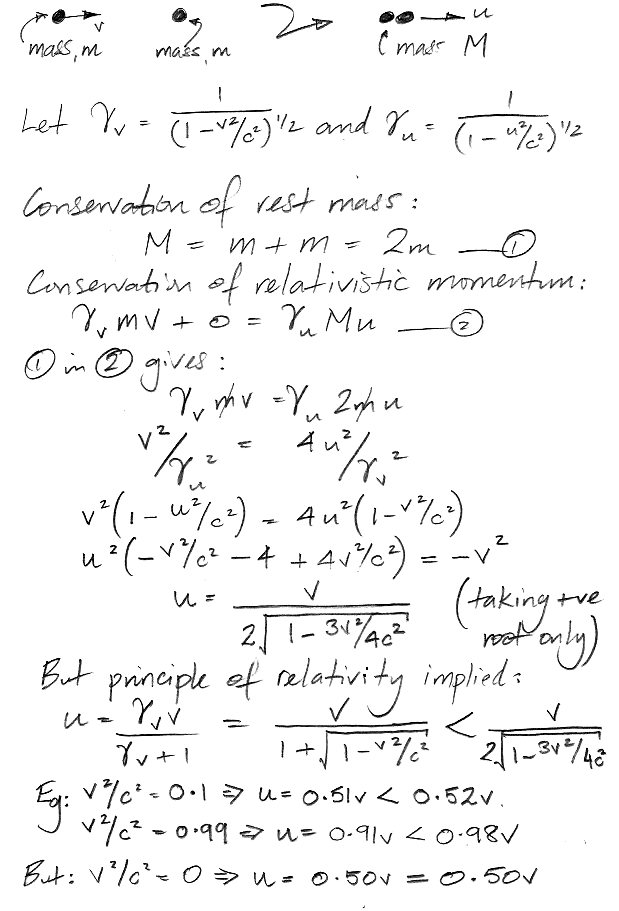 v u
mass, m mass, m mass M
Let γ_v = 1/(1 - v²/c²)^1/2 and γ_u = 1/(1 - u²/c²)^1/2
Conservation of rest mass:
M = m + m = 2m — ①
Conservation of relativistic momentum:
γ_v mv + 0 = γ_u Mu — ②
① in ② gives:
γ_v mv = γ_u 2mu
v²/γ_u² = 4u²/γ_v²
v²(1 - u²/c²) = 4u²(1 - v²/c²)
u²(-v²/c² - 4 + 4v²/c²) = -v²
u = v/(2√(1 - 3v²/4c²)) (taking +ve
root only)
But principle of relativity implied:
u = γ_v v/(γ_v + 1) = v/(1 + √(1 - v²/c²)) < v/(2√(1 - 3v²/4c²))
Eg: v²/c² = 0.1 ⇒ u = 0.51v < 0.52v.
v²/c² = 0.99 ⇒ u = 0.91v < 0.98v
But: v²/c² = 0 ⇒ u = 0.50v = 0.50v